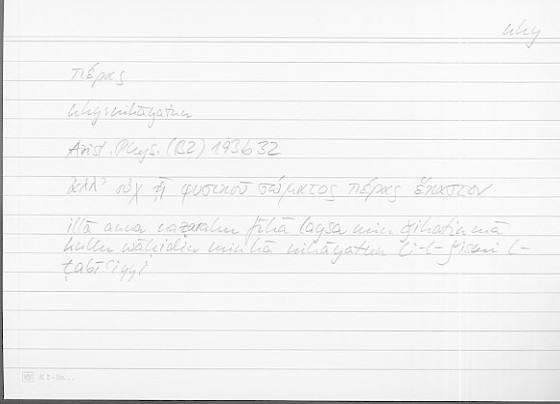 nhy
πέρας
nhy: nihāyatun
Arist. Phys. (B2) 193b32
ἀλλ' οὐχ ᾗ φυσικοῦ σώματος πέρας ἕκαστον
illā anna naẓarahu fīhā laysa min ǧihatin mā
kullu wāḥidin minhā nihāyatun li-l-ǧismi l-
ṭabīʿiyyi